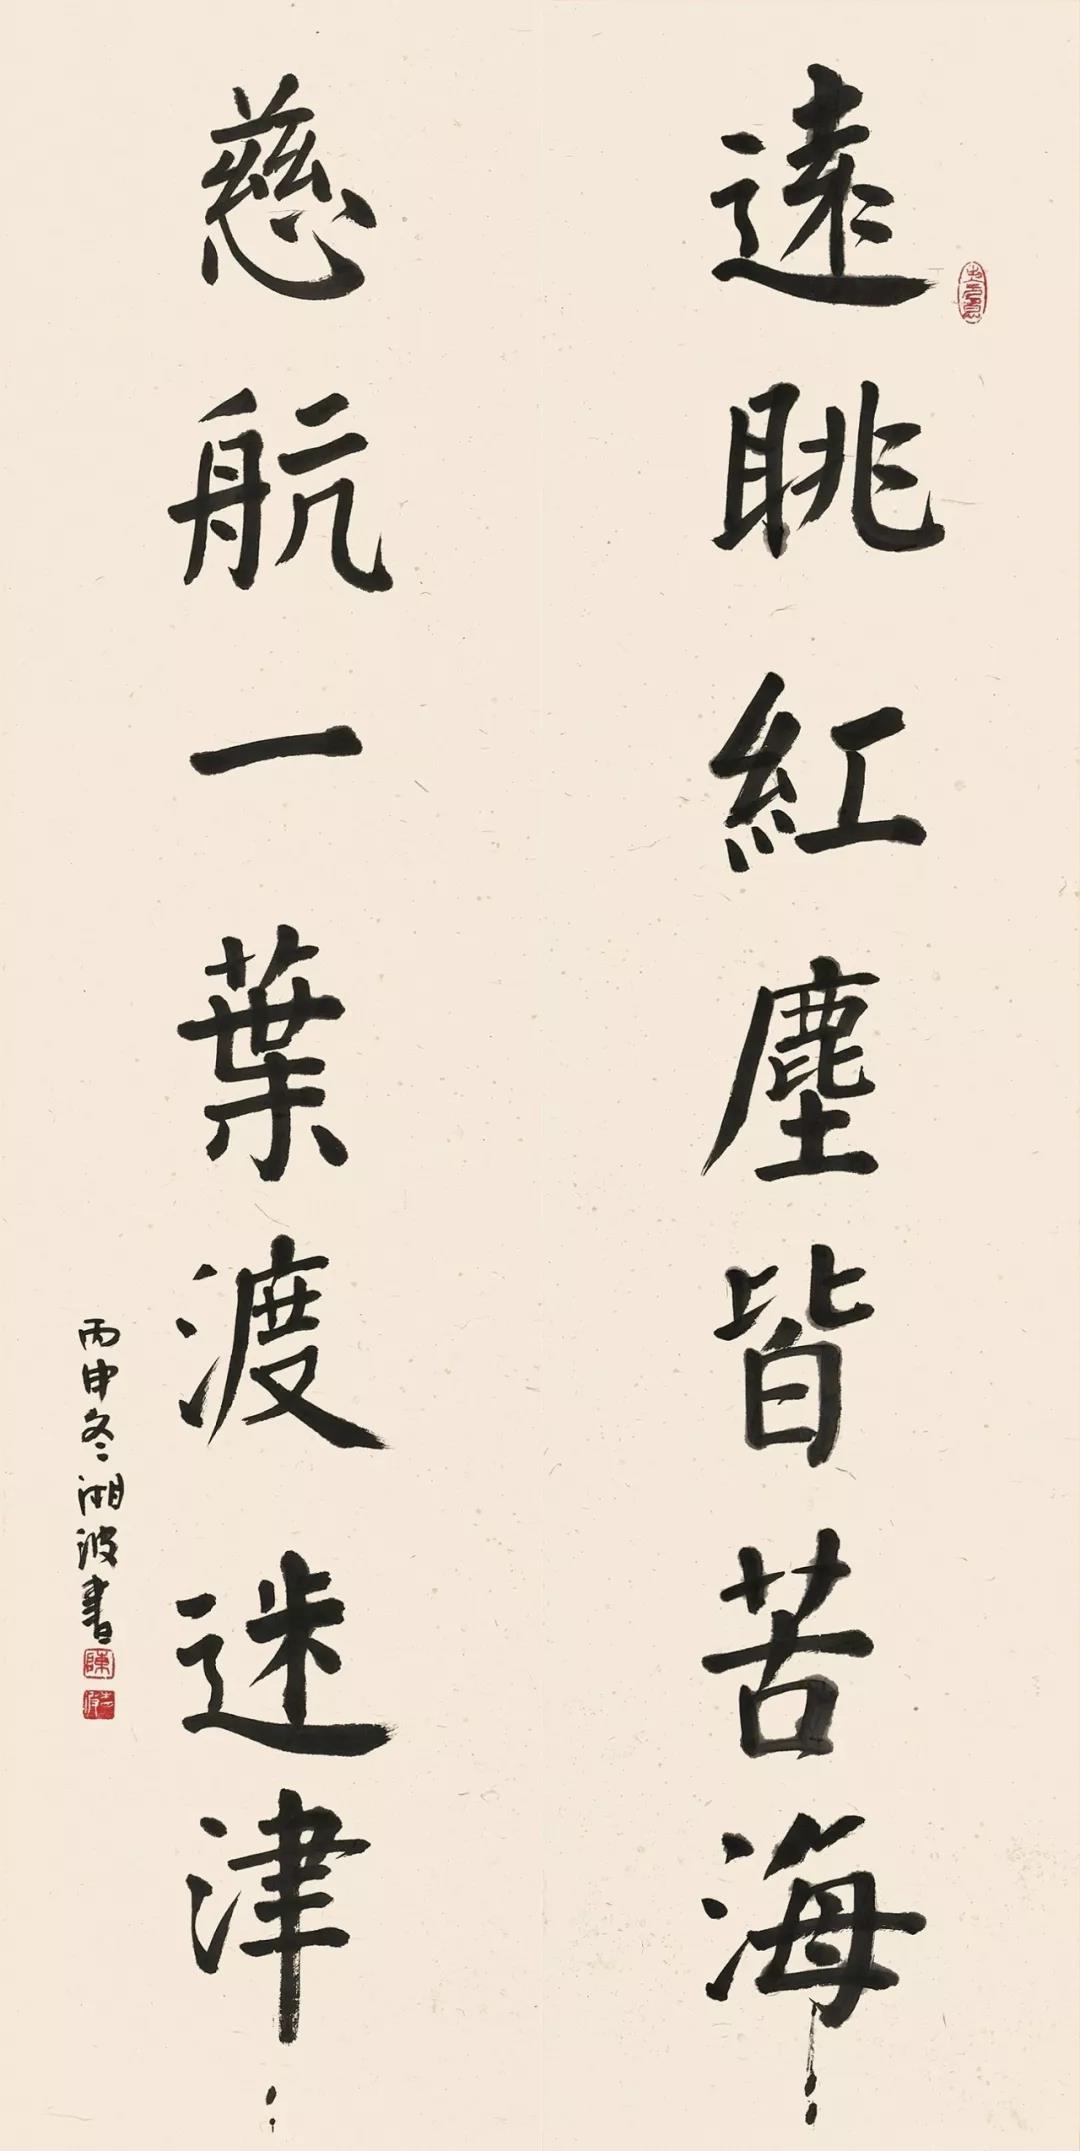 遠眺紅塵皆苦海
慈航一葉渡迷津
丙申冬湘波書
陳